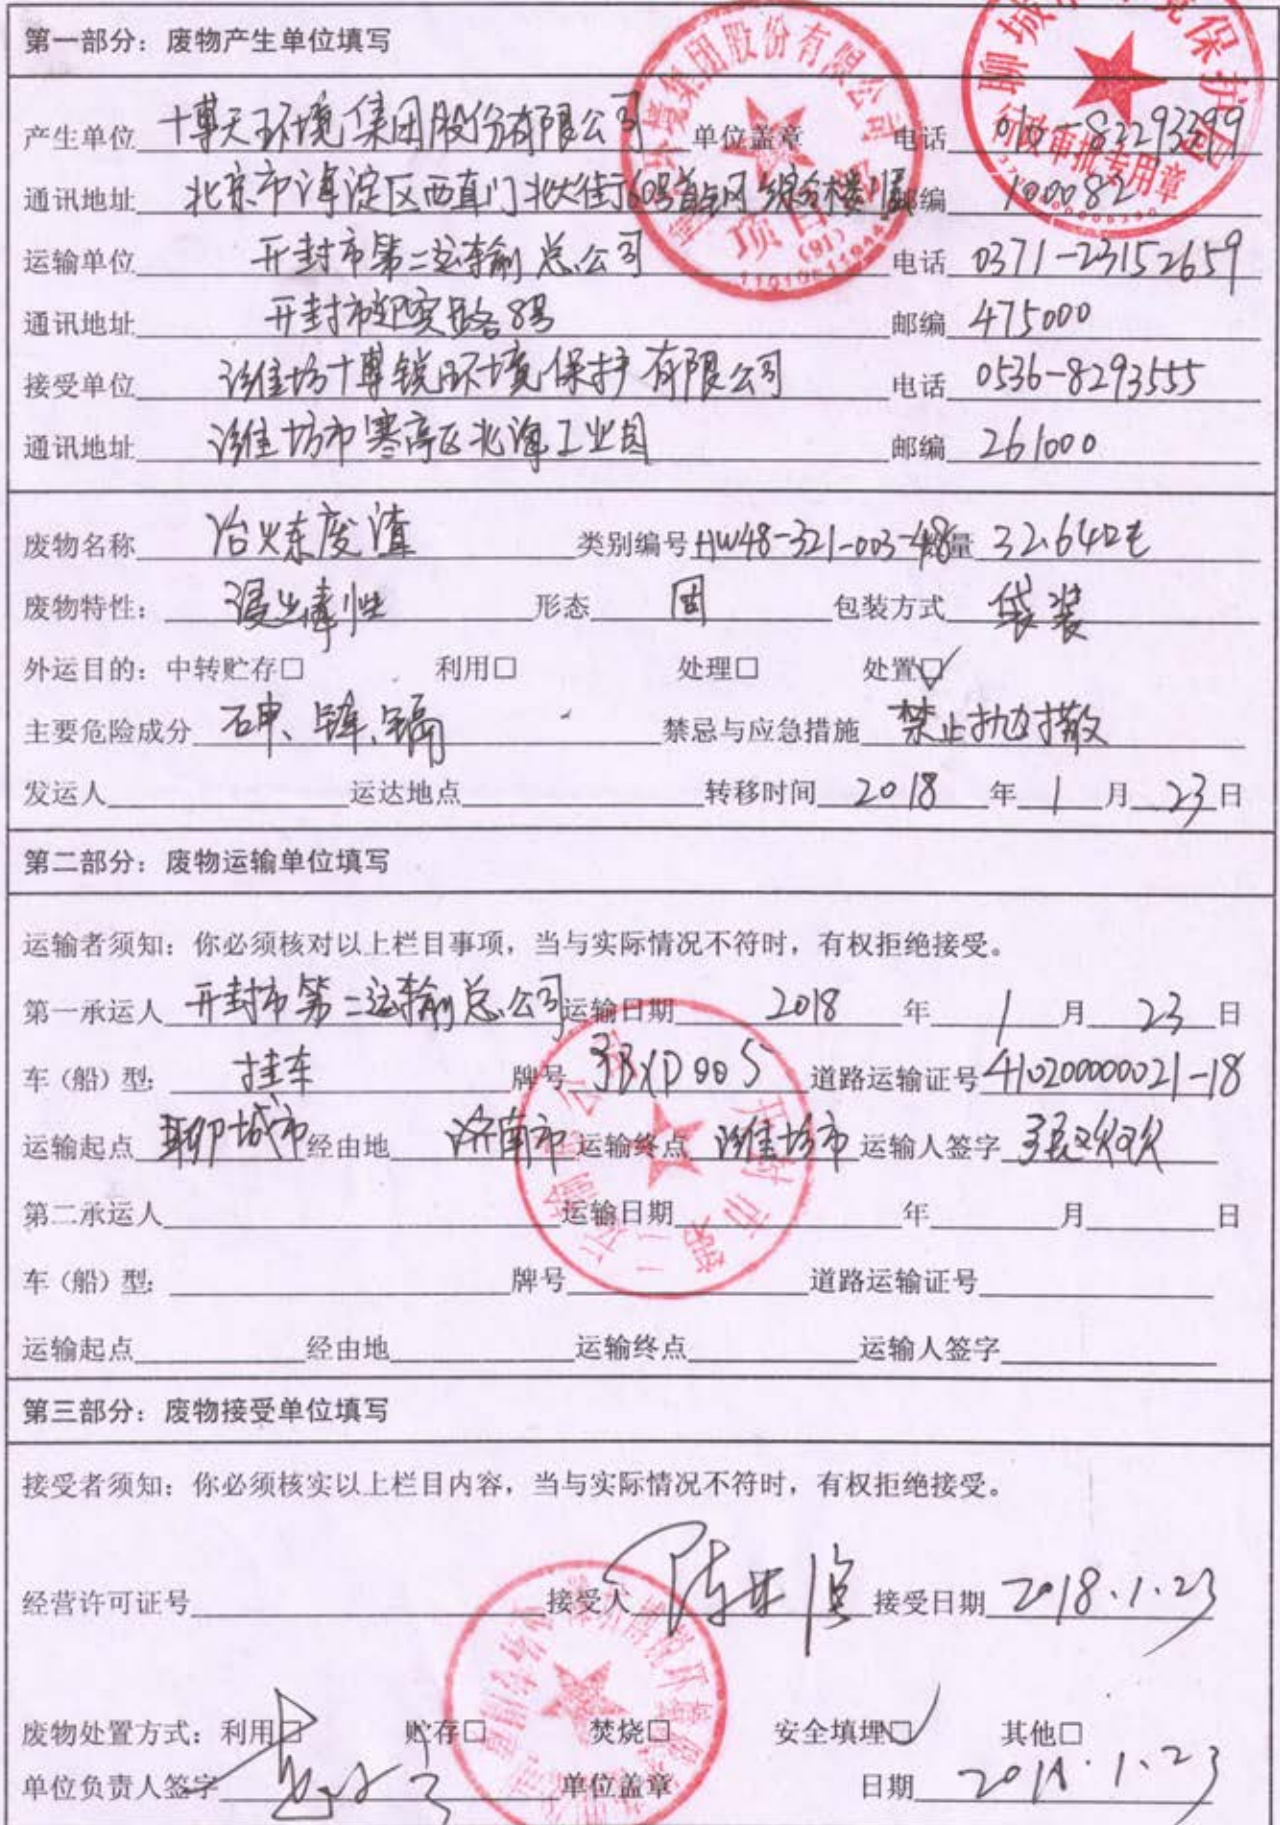 第一部分：废物产生单位填写
产生单位 博天环境集团股份有限公司 单位盖章 电话 010-82293399
通讯地址 北京市海淀区西直门北大街60号首钢综合楼 邮编 100082
运输单位 开封市第二运输总公司 电话 0371-23152659
通讯地址 开封市迎宾路8号 邮编 475000
接受单位 潍坊博锐环境保护有限公司 电话 0536-8293555
通讯地址 潍坊市寒亭区北海工业园 邮编 261000
废物名称 冶炼废渣 类别编号 HW48-321-003-48 量 32.64吨
废物特性： 浸出毒性 形态 固 包装方式 袋装
外运目的：中转贮存□ 利用□ 处理□ 处置☑
主要危险成分 砷、锌、镉 禁忌与应急措施 禁止抛撒
发运人 运达地点 转移时间 2018 年 1 月 23 日
第二部分：废物运输单位填写
运输者须知：你必须核对以上栏目事项，当与实际情况不符时，有权拒绝接受。
第一承运人 开封市第二运输总公司 运输日期 2018 年 1 月 23 日
车（船）型: 挂车 牌号 道路运输证号 410200000021-18
运输起点 聊城市 经由地 济南市 运输终点 潍坊市 运输人签字 张欢欢
第二承运人 运输日期 年 月 日
车（船）型: 牌号 道路运输证号
运输起点 经由地 运输终点 运输人签字
第三部分：废物接受单位填写
接受者须知：你必须核实以上栏目内容，当与实际情况不符时，有权拒绝接受。
经营许可证号 接受人 接受日期 2018.1.23
废物处置方式：利用□ 贮存□ 焚烧□ 安全填埋☑ 其他□
单位负责人签字 单位盖章 日期 2018.1.23
行政审批专用章
项目部
(91)